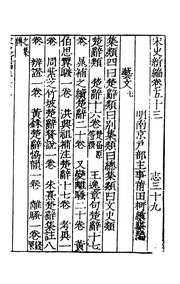 宋史新編卷五十三　志三十九
明南京戶部主事莆田柯維騏編
藝文七
集類四曰楚辭類曰別集類曰總集類曰文史類
楚辭類　楚辭十六卷　王逸章句楚辭十七
卷　晁補之續楚辭二十卷　又變離騷二十卷　黃
伯思翼騷一卷　洪興祖補注楚辭十七卷　考異一
卷　周紫芝竹坡楚辭贅說一卷　朱熹楚辭集註八
卷　辨證一卷　黃銖楚辭協韻一卷　離騷一卷